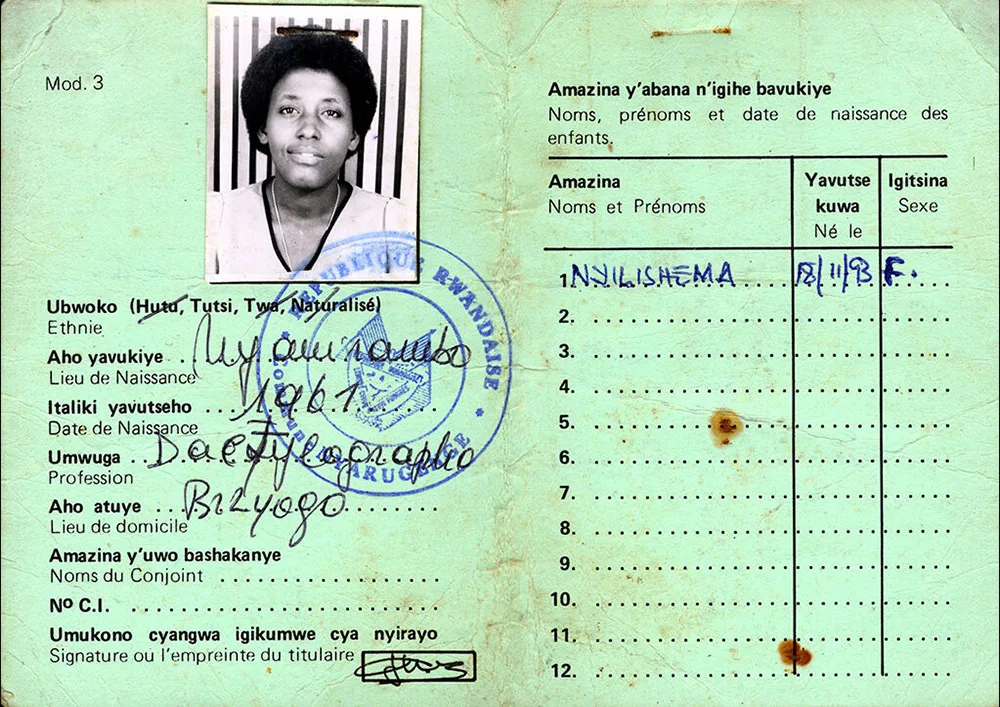 Mod. 3
Ubwoko (Hutu, Tutsi, Twa, Naturalisé)
Ethnie
Aho yavukiye Nyamirambo
Lieu de Naissance
Italiki yavutseho 1961
Date de Naissance
Umwuga Dactylographe
Profession
Aho atuye Biryogo
Lieu de domicile
Amazina y'uwo bashakanye
Noms du Conjoint
Nº C.I.
Umukono cyangwa igikumwe cya nyirayo
Signature ou l'empreinte du titulaire
REPUBLIQUE RWANDAISE
Commune NYARUGENGE
Amazina y'abana n'igihe bavukiye
Noms, prénoms et date de naissance des
enfants.
Amazina Yavutse Igitsina
Noms et Prénoms kuwa Sexe
Né le
1. NYILISHEMA 18/11/93 F.
2.
3.
4.
5.
6.
7.
8.
9.
10.
11.
12.